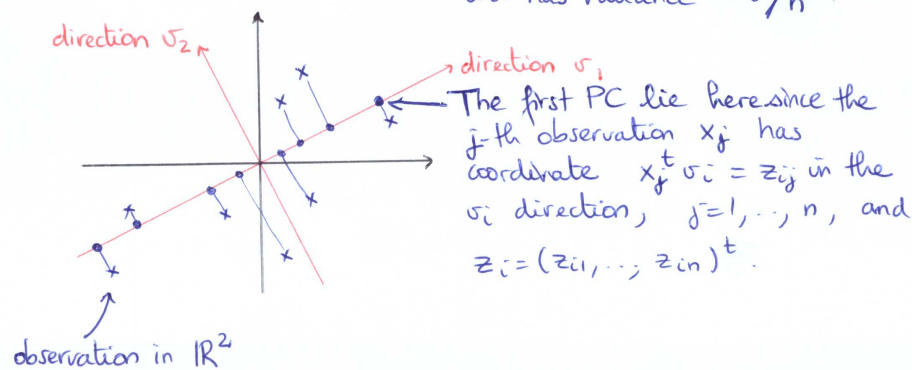 has variance /n
direction v₂
direction v₁
The first PC lie here since the
j-th observation xⱼ has
coordinate xⱼᵗ vᵢ = zᵢⱼ in the
vᵢ direction, j=1,..,n, and
zᵢ=(zᵢ₁,..,zᵢₙ)ᵗ.
observation in ℝ²